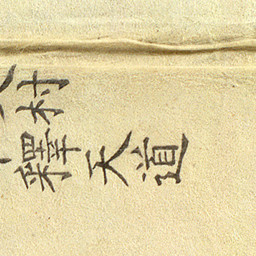 道
天
村釋